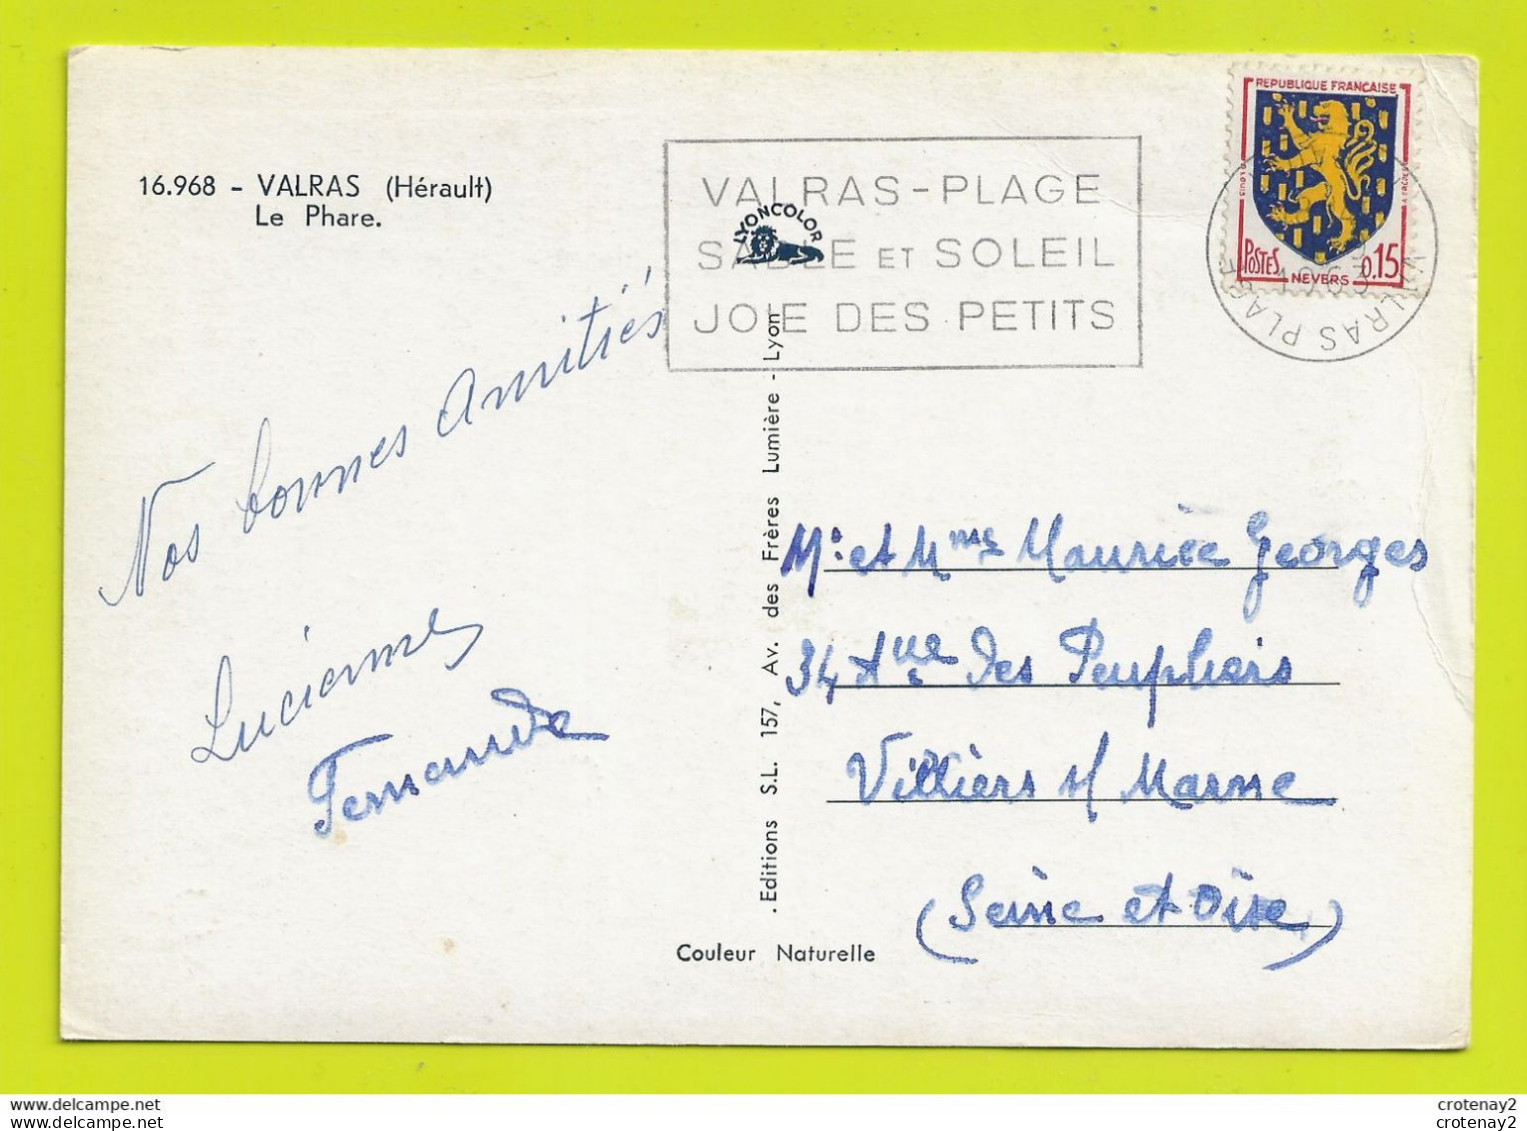 16.968 - VALRAS (Hérault)
Le Phare.
VALRAS-PLAGE
SABLE ET SOLEIL
JOIE DES PETITS
LYONCOLOR
REPUBLIQUE FRANCAISE
POSTES
NEVERS
0.15
VALRAS PLAGE
Nos bonnes Amitiés
Lucienne
Fernande
. Editions S.L. 157, Av. des Frères Lumière - Lyon
Mr et Mme Maurice Georges
34 Aue des Peupliers
Villiers s/ Marne
(Seine et Oise)
Couleur Naturelle
crotenay2
crotenay2
crotenay2
crotenay2